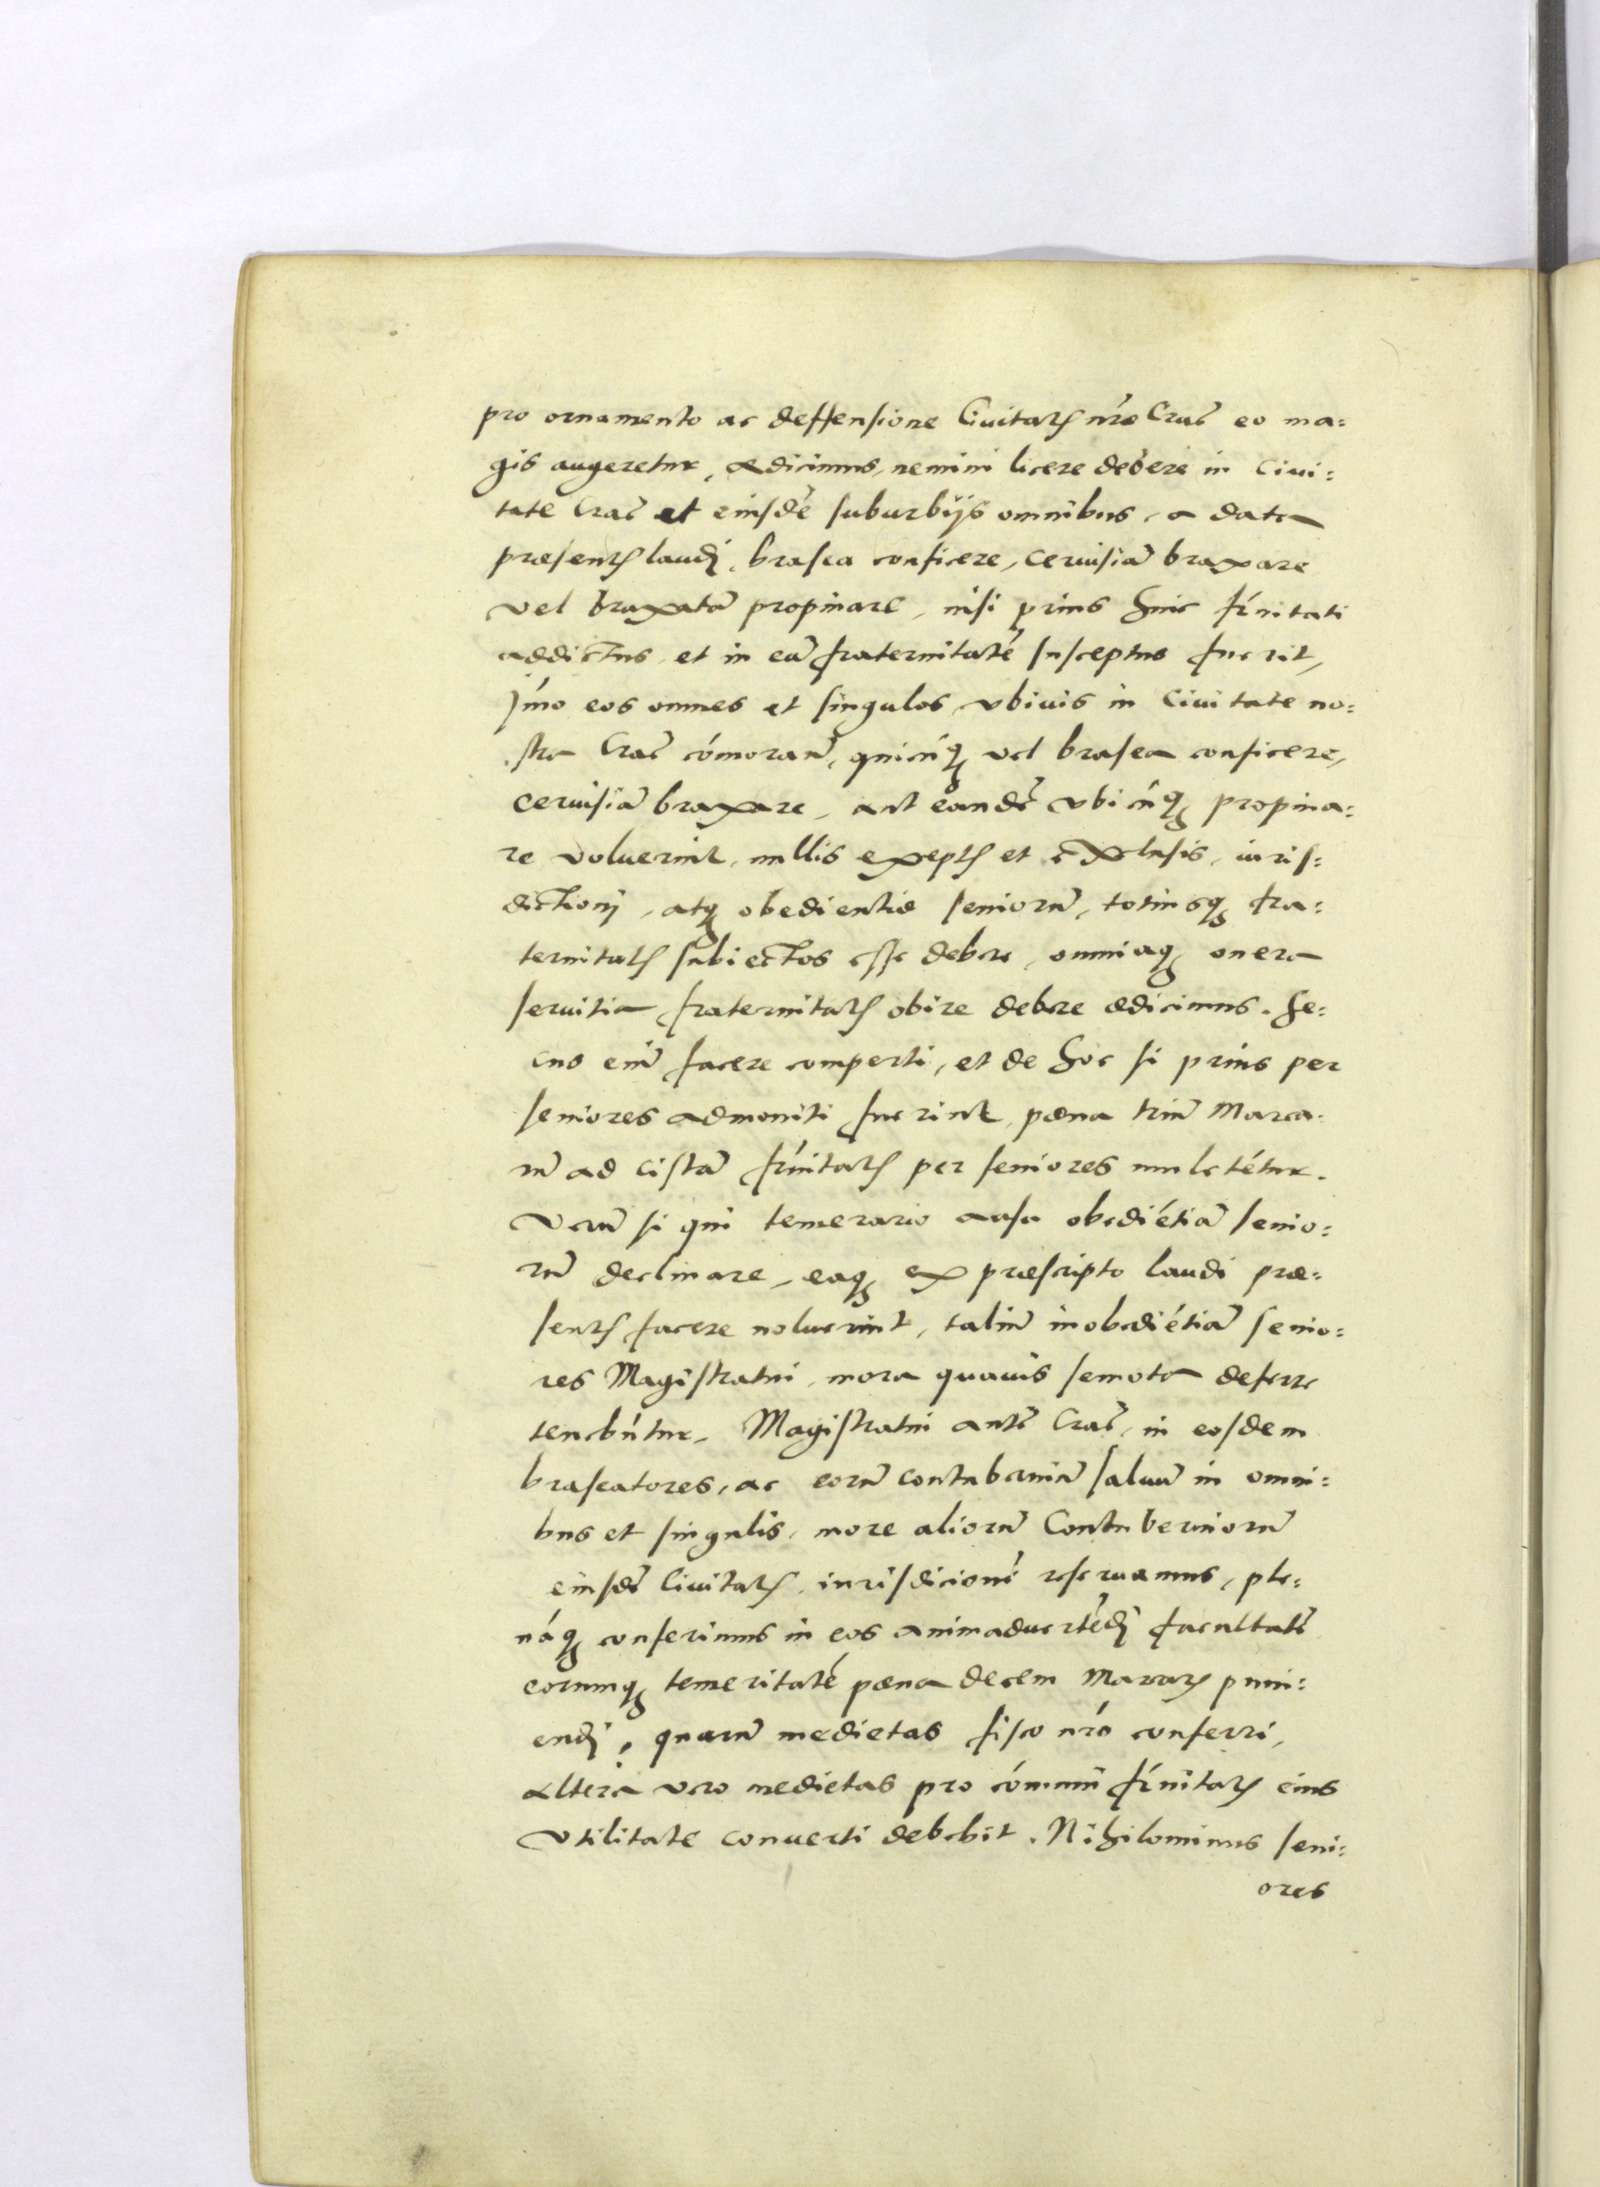 pro ornamento ac deffensione Ciuitatꝭ nr̃e Crac̃ eo ma=
gis augeretur, ædicimus, nemini licere debere in Ciui=
tate Crac̃ et eiusdẽ suburbijs omnibus, a data
præsentꝭ laudj, brasea conficere, ceruisiã braxare
vel braxatã propinare, nisi prius huic fr̃nitati
addictus, et in eã fraternitatẽ susceptus fuerit,
Jm̃o eos omnes et singulos, vbiuis in Ciuitate no=
stra Crac̃ cõmoran̄, quicũqꝫ vel brasea conficere,
ceruisiã braxare, aut eandẽ vbicũqꝫ propina=
re voluerint, nullis exeptꝭ et exclusis, iuris=
dictionj, atqꝫ obedientiæ seniorũ, totiusqꝫ fra=
ternitatꝭ subiectos esse debere, omniaqꝫ onera
seruitia fraternitatꝭ obire debere ædicimus. Se=
cus eñi facere comperti, et de hoc si prius per
seniores admoniti fuerint, pæna triũ Marca=
rũ ad cistã fr̃nitatꝭ per seniores mulctẽtur.
Verũ si qui temerario ausu obediẽtiã senio=
rũ declinare, eaqꝫ ex præscripto laudi præ=
sentꝭ facere noluerint, taliũ inobediẽtiã senio=
res Magistratui, mora quauis semota deferre
tenebũtur, Magistratui autẽ Crac̃, in eosdem
braseatores, ac eorũ contuberniũ saluã in omni=
bus et singulis, more aliorũ Contuberniorũ
eiusdẽ Ciuitatꝭ, iurisdicionẽ reseruamus, ple=
nãqꝫ conferimus in eos animaduertẽdj facultatẽ
eorumqꝫ temeritatẽ pæna decem Marcarꝭ puni=
endj, quarũ medietas fisco nr̃o conferri,
altera vero medietas pro cõmuni fr̃nitatꝭ eius
vtilitate conuerti debebit. Nihilominus seni=
ores